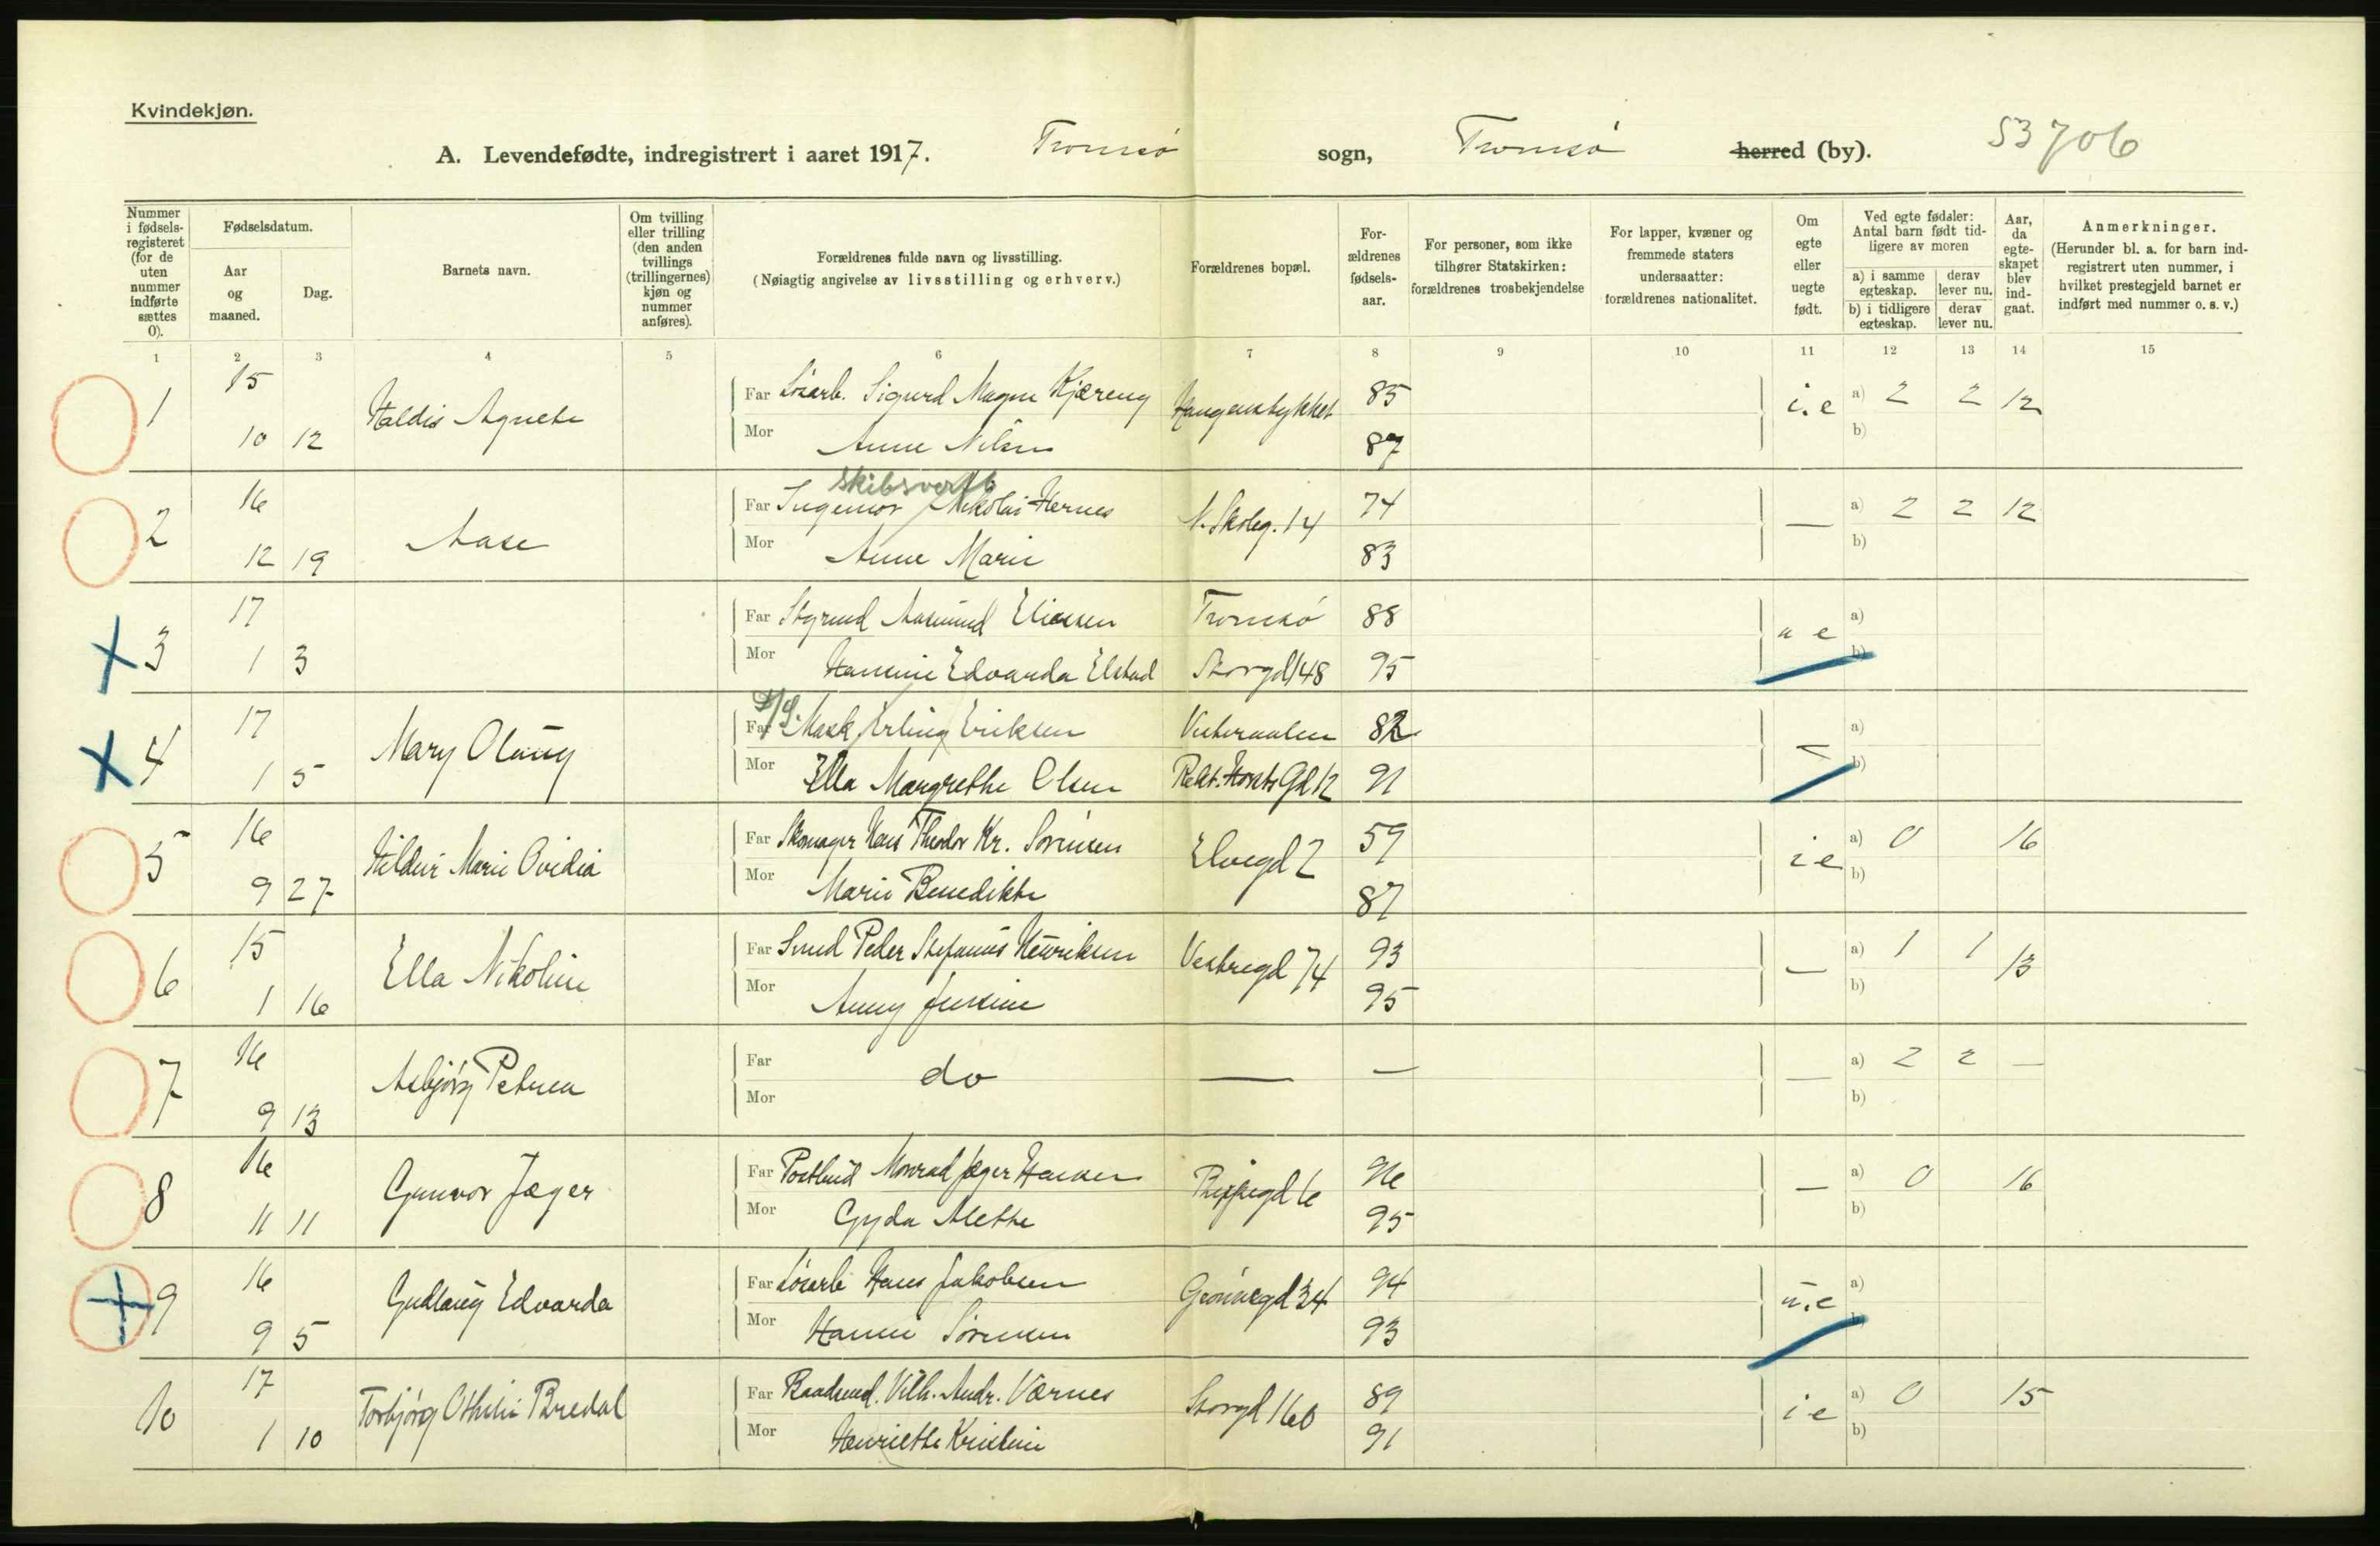 Kvindekjøn.
A. Levendefødte, indregistrert i aaret 1917. Tromsø sogn, Tromsø herred (by). 53706
Nummer i fødselsregisteret (for de uten nummer indførte sættes 0).
Fødselsdatum.
Aar og maaned.
Dag.
Barnets navn.
Om tvilling eller trilling (den anden tvillings (trillingernes) kjøn og nummer anføres).
Forældrenes fulde navn og livsstilling.
(Nøiagtig angivelse av livsstilling og erhverv.)
Forældrenes bopæl.
Forældrenes fødselsaar.
For personer, som ikke tilhører Statskirken: forældrenes trosbekjendelse
For lapper, kvæner og fremmede staters undersaatter: forældrenes nationalitet.
Om egte eller uegte født.
Ved egte fødsler: Antal barn født tidligere av moren
a) i samme egteskap. derav lever nu.
b) i tidligere egteskap. derav lever nu.
Aar, da egteskapet blev indgaat.
Anmerkninger.
(Herunder bl. a. for barn indregistrert uten nummer, i hvilket prestegjeld barnet er indført med nummer o. s. v.)
1 2 3 4 5 6 7 8 9 10 11 12 13 14 15
15 Far Løsarb. Sigurd Magne Kjæreng 85 a) 2 2 12
1 Haldis Agnete Haugenstykket i.e
10 12 Mor Anne Nilsen 87 b)
skibsverft
16 Far Ingeniør Nikolai Hernes 74 a) 2 2 12
2 Aase N. Skoleg. 14 —
12 19 Mor Anne Marie 83 b)
17 Far Styrmd Aasmund Eliassen Tromsø 88 a)
3 u e
1 3 Mor Hansine Edvarda Elstad Storgd 148 95 b)
D/S.
17 Far Mask. Erling Eriksen Vesteraalen 82 a)
4 Mary Olaug —
1 5 Mor Ella Margrethe Olsen Rekt. Horsts Gd 12 91 b)
16 Far Skomager Hans Theodor Kr. Sørensen 59 a) 0 16
5 Hildur Marie Ovidia Elvegd 2 i e
9 27 Mor Marie Benedikte 87 b)
15 Far Smed Peder Stefanus Henriksen 93 a) 1 1 13
6 Ella Nikoline Vestregd 74 —
1 16 Mor Anny Jensine 95 b)
16 Far a) 2 2 —
7 Asbjørg Petrea do — — —
9 13 Mor b)
16 Far Postbud Monrad Jæger Hansen 96 a) 0 16
8 Gunvor Jæger 6 —
11 11 Mor Gyda Alette 95 b)
16 Far Løsarb Hans Jakobsen 94 a)
9 Gudlaug Edvarda Grønnegd 34 u.e
9 5 Mor Hanna Sørensen 93 b)
17 Far Baadsmd. Vilh. Andr. Værnes 89 a) 0 15
10 Torbjørg Othilie Bredal Storgd 160 i e
1 10 Mor Henriette Kristine 91 b)